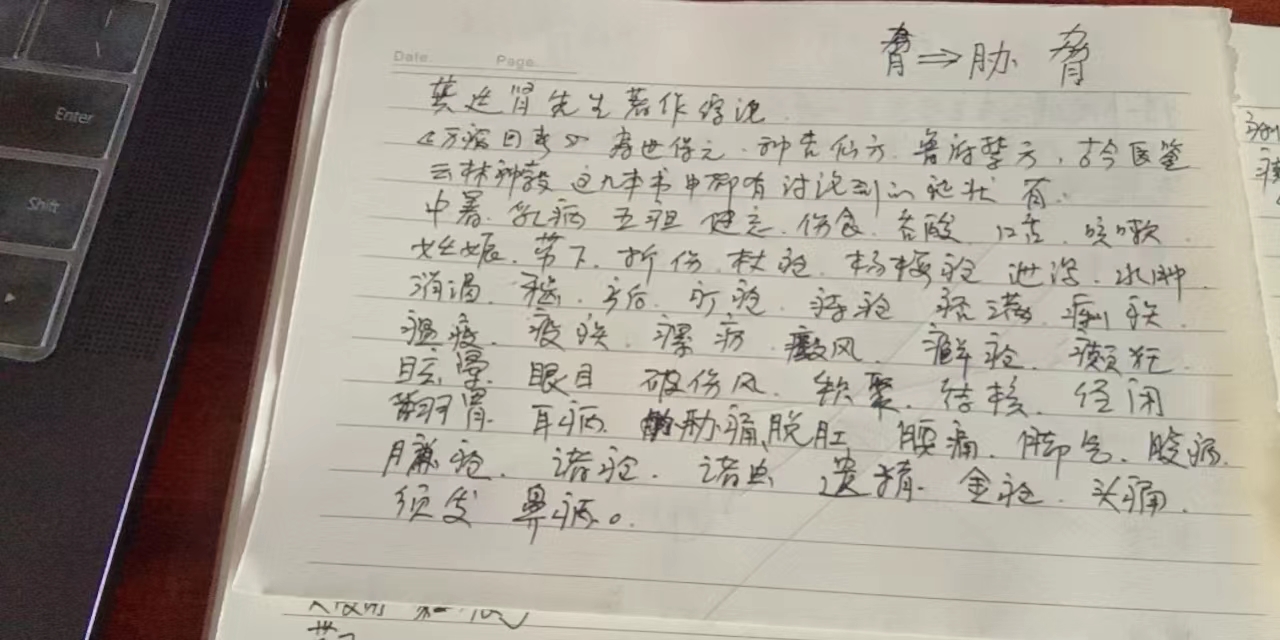 脅⇒胁 脅
Date. Page.
龚廷贤先生著作综论
《万病回春》寿世保元.种杏仙方.鲁府禁方.古今医鉴
云林神彀 这九本书中都有讨论到的证状 有.
中暑.乳病 五疸 健忘.伤食.吞酸.口舌.咳嗽.
妊娠.带下.折伤.杖疮.杨梅疮 泄泻.水肿.
消渴. 产后.疔疮.痔疮 痞满 痢疾.
瘟疫.疟疾.瘰疬.癜风.癣疮.癫狂.
眩晕.眼目 破伤风.积聚.结核.经闭
翻胃.耳病 胁痛、脱肛 腰痛.脚气.
臁疮.诸疮.诸虫 遗精.金疮.头痛.
须发 鼻病。
Enter
Shift